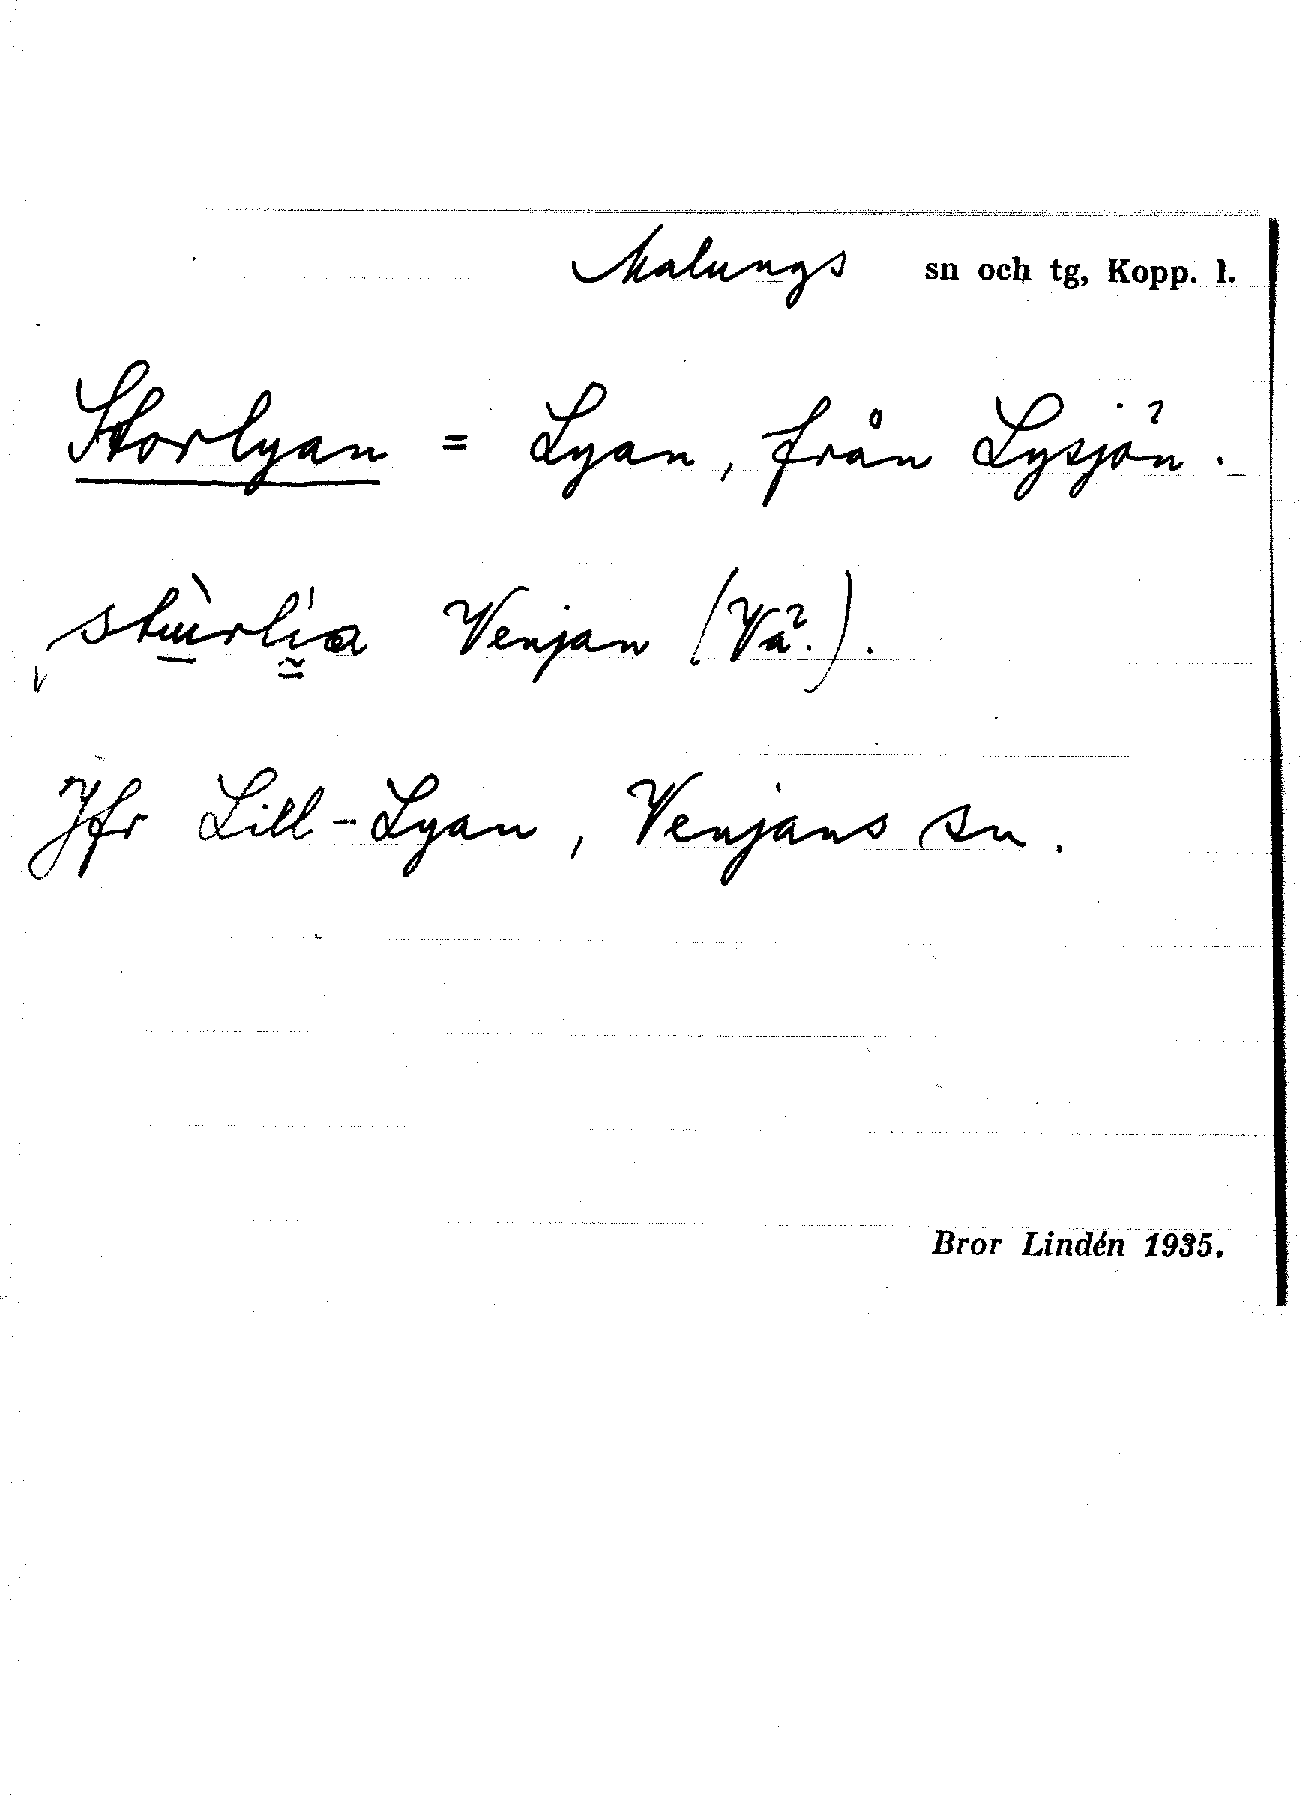 Malungs sn och tg, Kopp. l.
Storlyan = Lyan, från Lysjön.
Venjan
Jfr Lill-Lyan, Venjans sn.
Bror Lindén 1935.